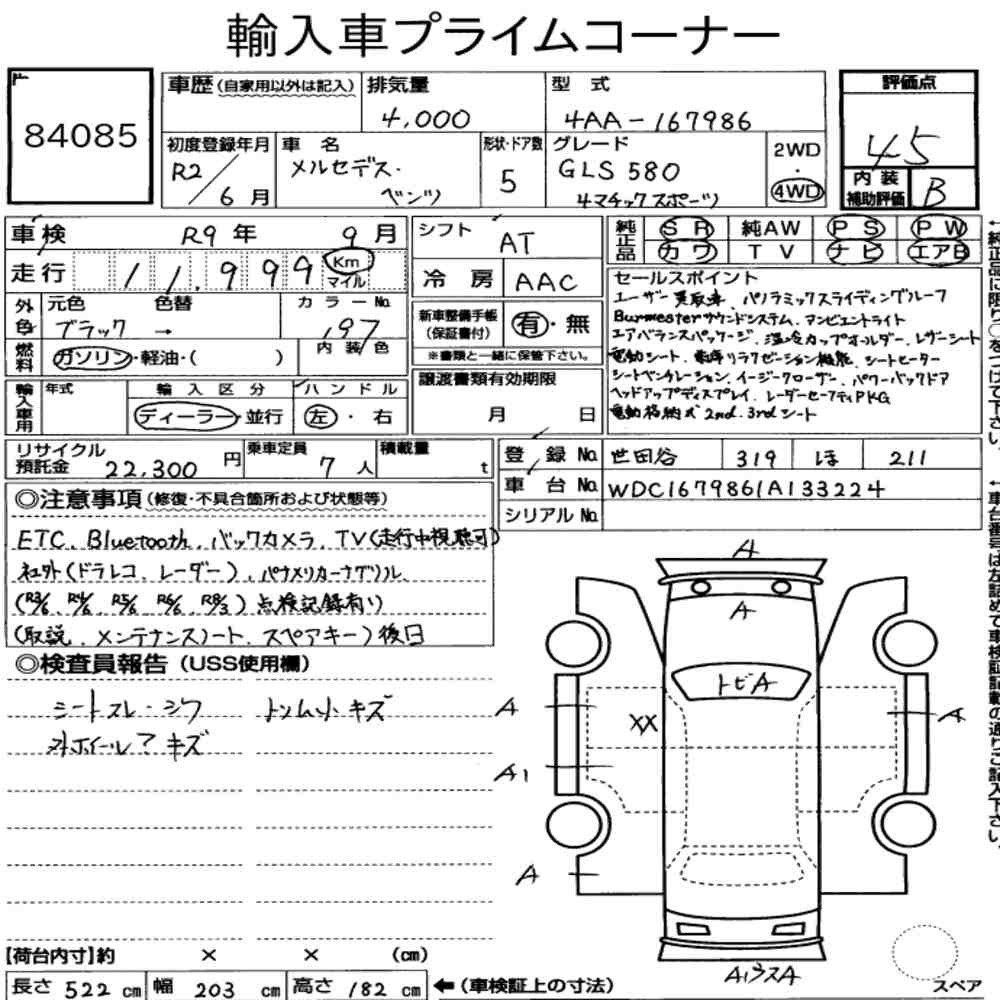 輸入車プライムコーナー
84085
車歴(自家用以外は記入) 排気量 型式 評価点
4,000 4AA-167986 45
初度登録年月 車名 形状・ドア数 グレード 2WD・4WD
R2/6月 メルセデス・ベンツ 5 GLS 580 4マチックスポーツ
内装補助評価 B
車検 R9年 9月
シフト AT
純正品 SR 純AW PS PW
カワ TV ナビ エアB
走行 11,999 Km マイル
冷房 AAC
外色 元色 色替 カラーNo.
ブラック → 197
内装色
燃料 ガソリン・軽油・( )
新車整備手帳(保証書付) 有・無
※書類と一緒に保管下さい。
セールスポイント
ユーザー買取車、パノラミックスライディングルーフ
Burmesterサウンドシステム、アンビエントライト
エアバランスパッケージ、温冷カップホルダー、レザーシート
電動シート、電序リラクゼーション機能、シートヒーター
シートベンチレーション、イージークローザー、パワーバックドア
ヘッドアップディスプレイ、レーダーセーフティPKG
電動格納式 2nd、3rdシート
輸入車用 年式 輸入区分 ハンドル
ディーラー・並行 左・右
譲渡書類有効期限
月 日
リサイクル預託金 22,300円 乗車定員 7人 積載量 t
登録No. 世田谷 319 ほ 211
車台No. WDC1679861A133224
シリアルNo.
◎注意事項(修復・不具合箇所および状態等)
ETC、Bluetooth、バックカメラ、TV(走行中視聴可)
社外(ドラレコ、レーダー)、パナメリカーナグリル
(R3/6、R4/6、R5/6、R6/6、R8/3)点検記録有り
(取説、メンテナンスノート、スペアキー)後日
◎検査員報告(USS使用欄)
シートスレ・シワ トリム小キズ
外ホイール7キズ
A
A
トビA
A XX A
A1
A
A1ウスA
【荷台内寸】約 × × (cm)
長さ 522 cm 幅 203 cm 高さ 182 cm ←(車検証上の寸法)
スペア
←純正品に限り○をつけて下さい。
←車台番号は左詰めで車検証記載の通りご記入下さい。